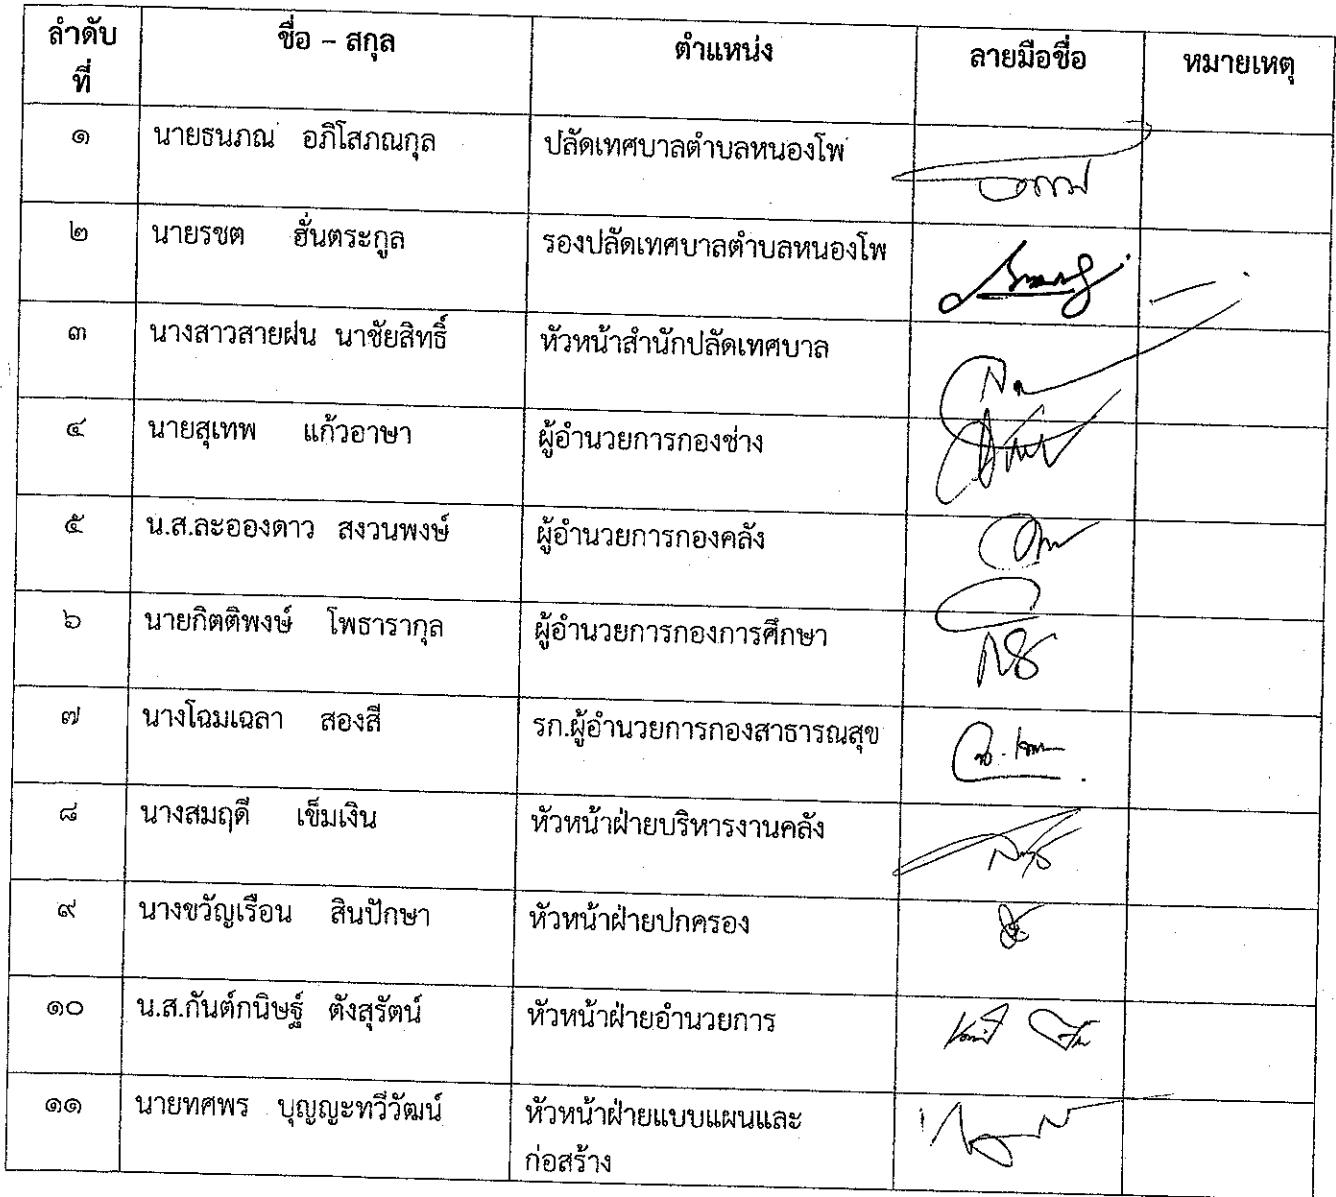 ลำดับที่ ชื่อ – สกุล ตำแหน่ง ลายมือชื่อ หมายเหตุ
๑ นายธนภณ อภิโสภณกุล ปลัดเทศบาลตำบลหนองโพ
๒ นายรชต ฮั่นตระกูล รองปลัดเทศบาลตำบลหนองโพ
๓ นางสาวสายฝน นาชัยสิทธิ์ หัวหน้าสำนักปลัดเทศบาล
๔ นายสุเทพ แก้วอาษา ผู้อำนวยการกองช่าง
๕ น.ส.ละอองดาว สงวนพงษ์ ผู้อำนวยการกองคลัง
๖ นายกิตติพงษ์ โพธารากุล ผู้อำนวยการกองการศึกษา
๗ นางโฉมเฉลา สองสี รก.ผู้อำนวยการกองสาธารณสุข
๘ นางสมฤดี เข็มเงิน หัวหน้าฝ่ายบริหารงานคลัง
๙ นางขวัญเรือน สินปักษา หัวหน้าฝ่ายปกครอง
๑๐ น.ส.กันต์กนิษฐ์ ตังสุรัตน์ หัวหน้าฝ่ายอำนวยการ
๑๑ นายทศพร บุญญะทวีวัฒน์ หัวหน้าฝ่ายแบบแผนและ
ก่อสร้าง